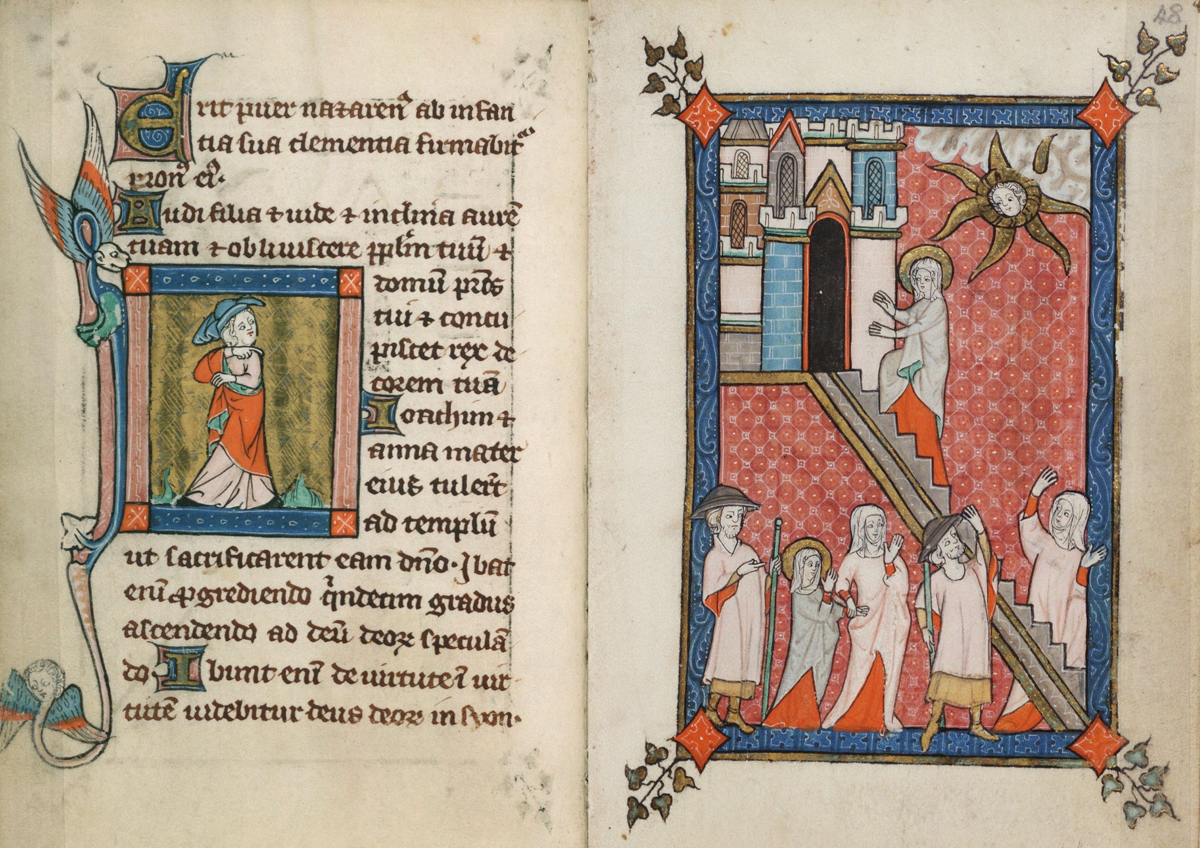 Erit puer nazaren⁹ ab infan
tia sua clementia firmabit᷎
tron⁹ ei⁹.
Audi filia ⁊ uide ⁊ inclina aurē
tuam ⁊ obliuiscere pplm̄ tuū ⁊
domū pr̄is
tui ⁊ concu
piscet rex de
corem tuū
Ioachim ⁊
anna mater
eius tuler̄t
ad templū
ut sacrificarent eam dn̄o. Ibat
enī ꝓgrediendo q̄ndecim gradus
ascendendo ad deū deoꝝ speculā
do. Ibunt enī de uirtute ī uir
tutē uidebitur deus deoꝝ in syon.
48